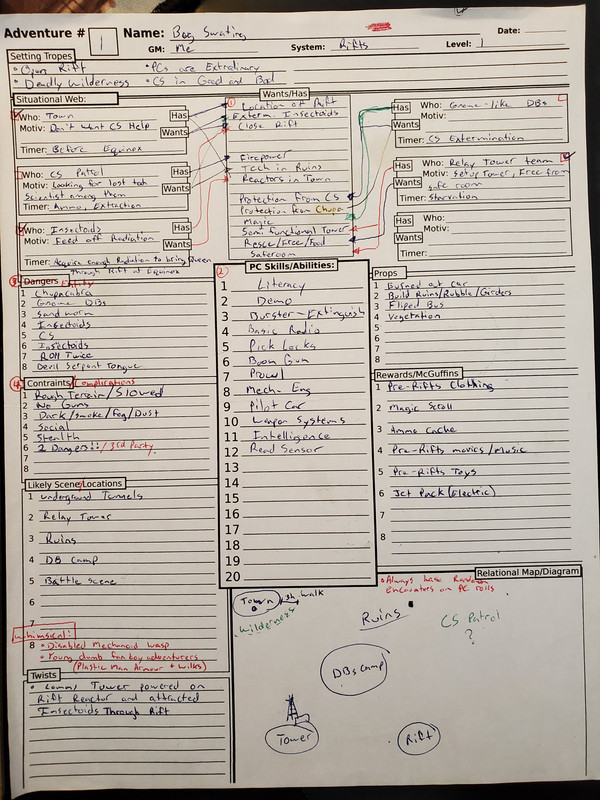 Adventure # 1 Name: Bug Swatting Date:
GM: Me System: Rifts Level: 1
Setting Tropes
• Open Rift • PCs are Extradinary
• Deadly Wilderness • CS in Good and Bad
Situational Web:
Who: Town Has
Motiv: Don't want CS Help Wants
Timer: Before Equinox
Who: CS Patrol Has
Motiv: Looking for lost tech
Scientist among them Wants
Timer: Ammo, Extraction
Who: Insectoids Has
Motiv: Feed off Radiation Wants
Timer: Acquire enough Radiation to bring Queen
through Rift at Equinox
Wants/Has
① Location of Rift
Exterm. Insectoids
Close Rift
Firepower
Tech in Ruins
Reactors in Town
Protection from CS
Protection from Chupa
Magic
Semi functional Tower
Rescue/Free/Food
Saferoom
Has Who: Gnome-like DBs
Motiv:
Wants
Timer: CS Extermination
Has Who: Relay Tower team
Motiv: Setup Tower, Free from
Wants safe room
Timer: Starvation
Has Who:
Motiv:
Wants
Timer:
③ Dangers/Entity
1 Chupacabra
2 Gnome DBs
3 Sand worm
4 Insectoids
5 CS
6 Insectoids
7 Roll Twice
8 Devil Serpent Tongue
④ Contraints/Complications
1 Rough Terrain/Slowed
2 No Guns
3 Dark/Smoke/Fog/Dust
4 Social
5 Stealth
6 2 Dangers!!/3rd Party
7
8
Likely Scenes/Locations
1 underground Tunnels
2 Relay Tower
3 Ruins
4 DB Camp
5 Battle Scene
6
7
Whimsical:
8 • Disabled Mechanoid wasp
• Young dumb fan boy adventurers
(Plastic Man Armour + Wilks)
Twists
• Comms Tower powered on
Rift Reactor and attracted
Insectoids Through Rift
② PC Skills/Abilities:
1 Literacy
2 Demo
3 Burster-Extinguish
4 Basic Radio
5 Pick Locks
6 Boom Gun
7 Prowl
8 Mech-Eng
9 Pilot Car
10 Weapon Systems
11 Intelligence
12 Read Sensor
13
14
15
16
17
18
19
20
Props
1 Burned out car
2 Build Ruins/Rubble/Girders
3 Fliped Bus
4 Vegetation
5
6
7
8
Rewards/McGuffins
1 Pre-Rifts Clothing
2 Magic Scroll
3 Ammo Cache
4 Pre-Rifts movies/music
5 Pre-Rifts Toys
6 Jet Pack (Electric)
7
8
Relational Map/Diagram
• Always have Random
encounters on PC rolls
Town walk
Wilderness
Ruins
CS Patrol
?
DBs camp
Tower
Rift